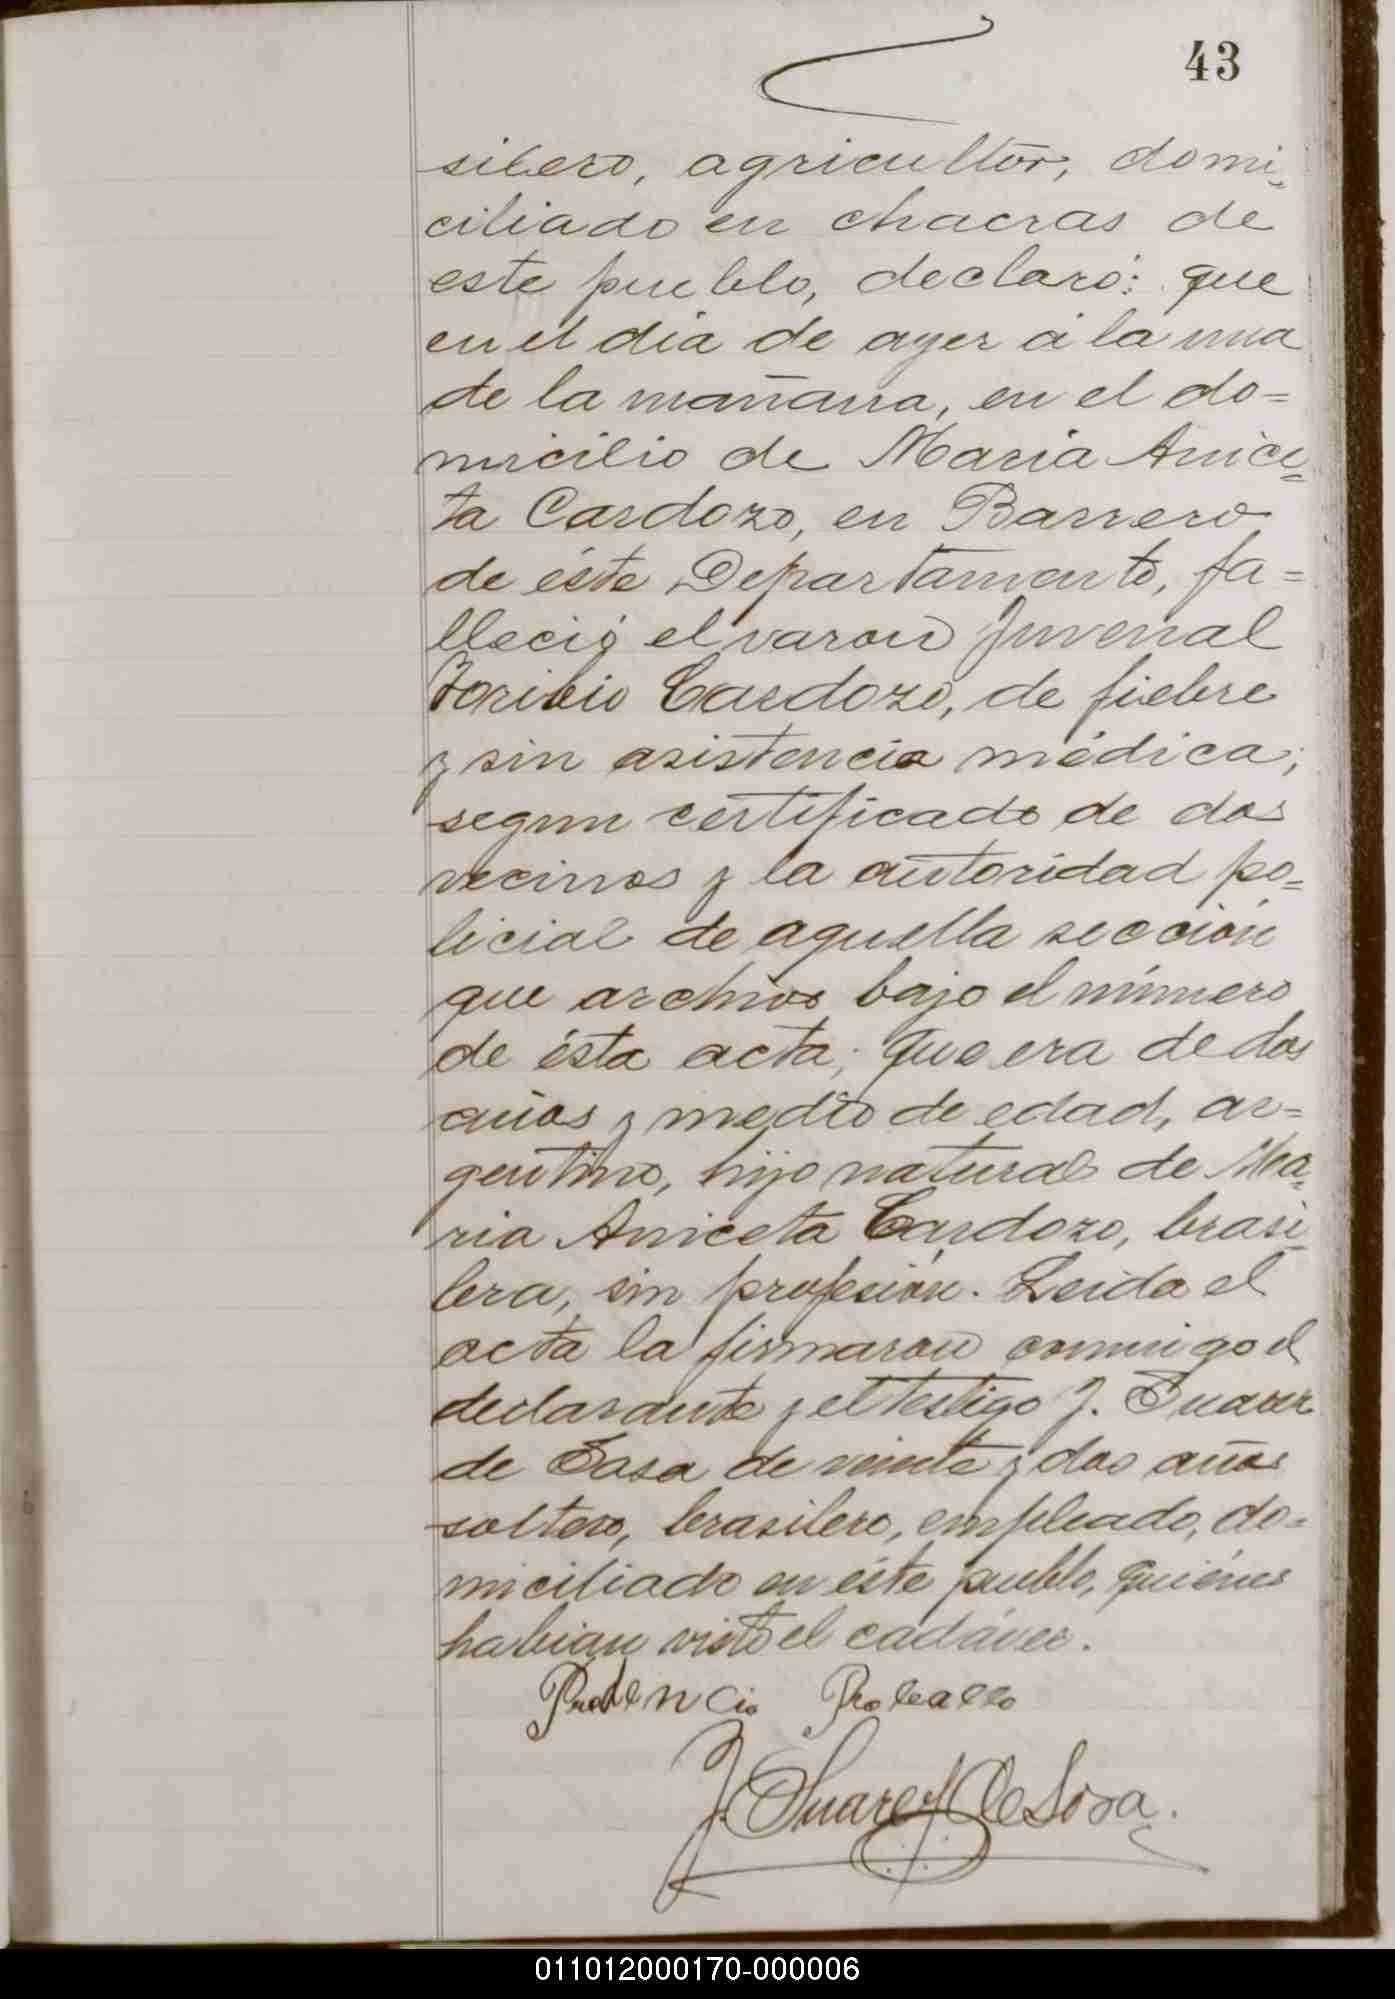 43
silero, agricultor, domi-
ciliado en chacras de
este pueblo, declaró: que
en el día de ayer á la una
de la mañana, en el do=
micilio de Maria Anice-
ta Cardozo, en Barrero
de éste Departamento, fa=
lleció el varon Juvenal
Toribio Cardozo, de fiebre
y sin asistencia médica;
segun certificado de dos
vecinos y la autoridad po=
licial de aquella sección
que archivo bajo el número
de ésta acta; que era de dos
años y medio de edad, ar=
gentino, hijo natural de Ma-
ria Aniceta Cardozo, brasi
lera, sin profesión. Leida el
acta la firmaron conmigo el
declarante y el testigo J. Suarez
de Sosa de veinte y dos años
soltero, brasilero, empleado, do=
miciliado en éste pueblo, quiénes
habian visto el cadáver.
Prudencio
J. Suarez de Sosa.
011012000170-000006